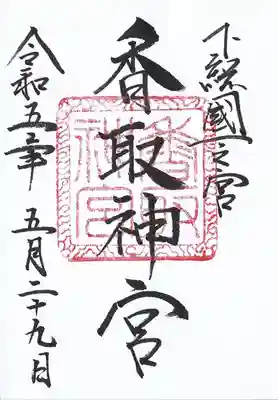 下総國一之宮
香取神宮
令和五年 五月二十九日
香取神宮